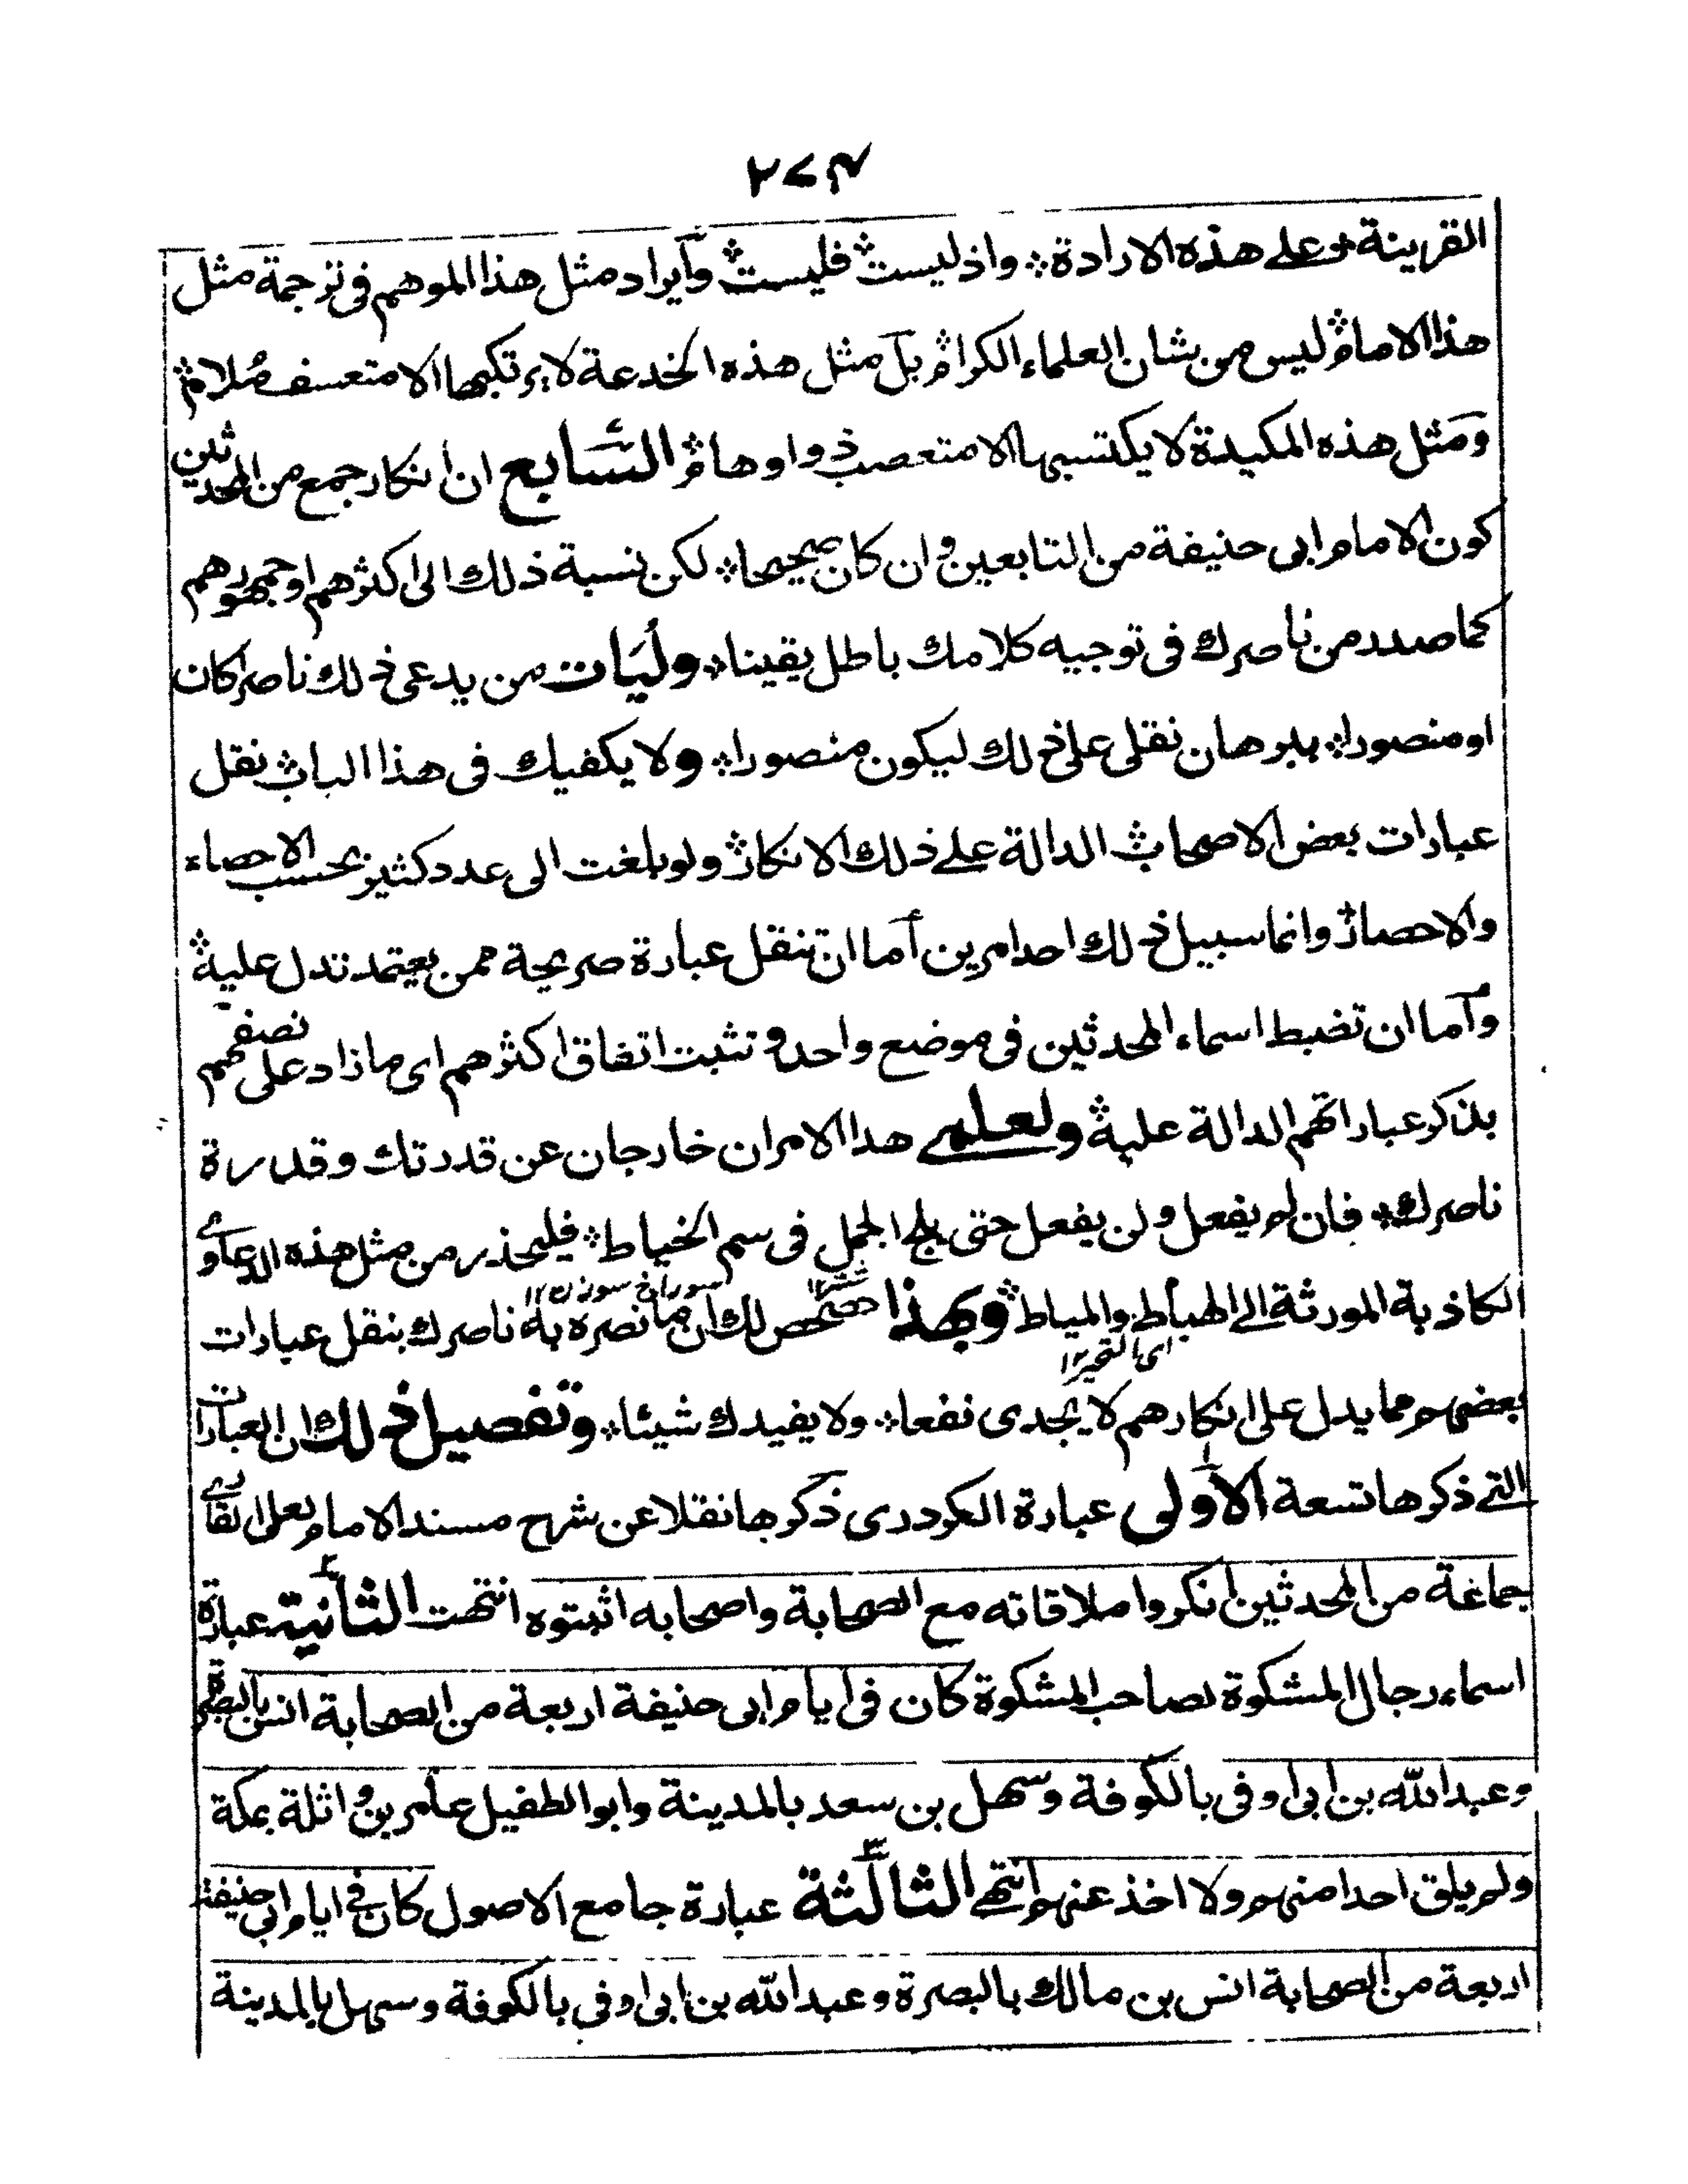 ٢٧٤
القرينة على هذه الارادة واذ ليست فليست وايراد مثل هذا الموهم فى ترجمة مثل
هذا الامام ليس من شان العلماء الكرام بل مثل هذه الخدعة لا يرتكبها الا متعسف ملام
ومثل هذه المكيدة لا يكتسبها الا متعصب ذو اوهام السابع ان انكار جمع من المحدثين
كون الامام ابى حنيفة من التابعين وان كان صحيحا لكن نسبة ذلك الى اكثرهم او جمهورهم
كما صدر من ناصرك فى توجيه كلامك باطل يقينا وليات من يدعى ذلك ناصرا كان
او منصورا ببرهان نقلى على ذلك ليكون منصورا ولا يكفيك فى هذا الباب نقل
عبارات بعض الاصحاب الدالة على ذلك الانكار ولو بلغت الى عدد كثير بحسب الاحصاء
والاحصار وانما سبيل ذلك احد امرين اما ان تنقل عبارة صريحة ممن يعتمد تدل عليه
واما ان تضبط اسماء المحدثين فى موضع واحد وتثبت اتفاق اكثرهم اى ما زاد على نصفهم
بذكر عباراتهم الدالة عليه ولعلمى هذا الامران خارجان عن قدرتك وقدرة
ناصرك فان لم يفعل ولن يفعل حتى يلج الجمل فى سم الخياط فليحذر من مثل هذه الدعاوى
شتر١٢ سوراخ سوزن١٢
الكاذبة المورثة الى الهباط والمياط وبهذا حصحص لك ان ما نصره به ناصرك بنقل عبارات
اى التحير١٢
بعضهم مما يدل على انكارهم لا يجدى نفعا ولا يفيدك شيئا وتفصيل ذلك ان العبارات
التى ذكرها تسعة الاولى عبارة الكردرى ذكرها نقلا عن شرح مسند الامام لعلى القارى
جماعة من المحدثين انكروا ملاقاته مع الصحابة واصحابه اثبتوه انتهت الثانية عبارة
اسماء رجال المشكوة لصاحب المشكوة كان فى ايام ابى حنيفة اربعة من الصحابة انس بالبصرة
وعبد الله بن ابى اوفى بالكوفة وسهل بن سعد بالمدينة وابو الطفيل عامر بن واثلة بمكة
ولم يلق احدا منهم ولا اخذ عنهم انتهى الثالثة عبارة جامع الاصول كان فى ايام ابى حنيفة
اربعة من الصحابة انس بن مالك بالبصرة وعبد الله بن ابى اوفى بالكوفة وسهل بالمدينة